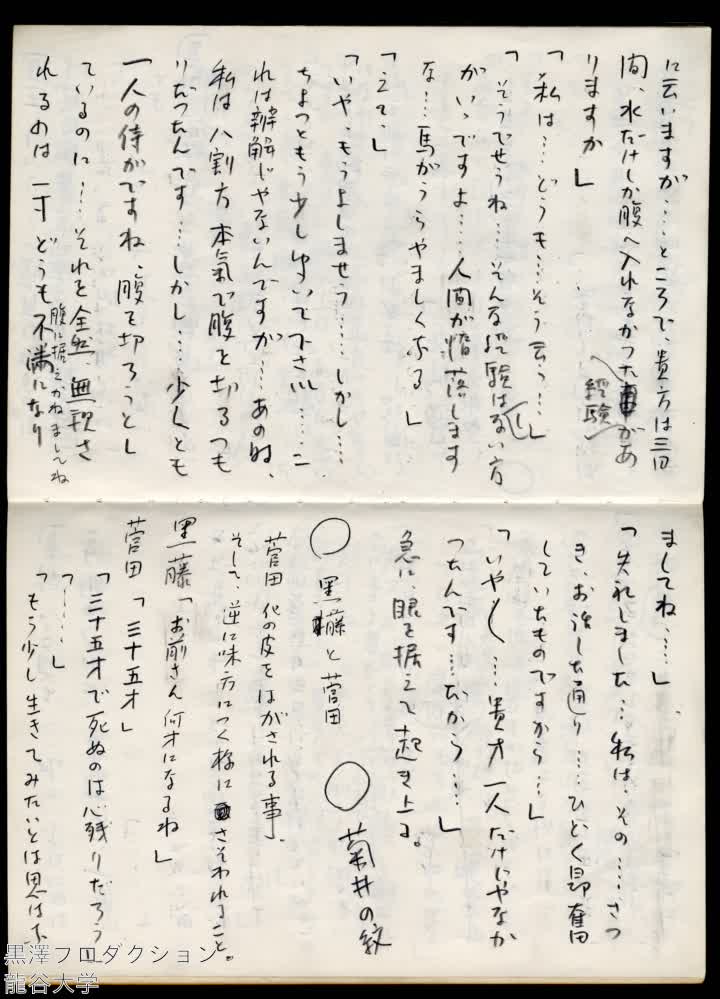 に云いますが……ところで、貴方は三日
間、水だけしか腹へ入れなかった経験があ
りますか」
「私は…どうも…そう云う…」
「そうでせうね…そんな経験はない方
がいゝですよ……人間が堕落します
な…馬がうらやましくなる」
「えゝ」
「いや、もうよしませう……しかし…
ちょっともう少しゆいで下さい……こ
れは辯解じやないんですが……あの時、
私は八割方本氣で腹を切るつも
りだつたんです…しかし……少くとも
一人の侍がですね、腹を切ろうとし
ているのに……それを全然無視さ
れるのは一寸どうも不満になり
腹に据えかねましてね
ましてね……」
「失礼しました…私は、その……さつ
き、お話した通り……ひどく昂奮
していたものですから…」
「いや〱……貴方一人だけじゃなか
つたんです…だから……」
急に、眼を据えて起き上る。
○ 黒藤と菅田
○ 菊井の紋
菅田 化の皮をはがされる事、
そして、逆に味方につく様にさそわれること。
黒藤「お前さん何才になるね」
菅田「三十五才」
「三十五才で死ぬのは心残りだろう」
「……」
「もう少し生きてみたいとは思はな
黒澤プロダクション
龍谷大学